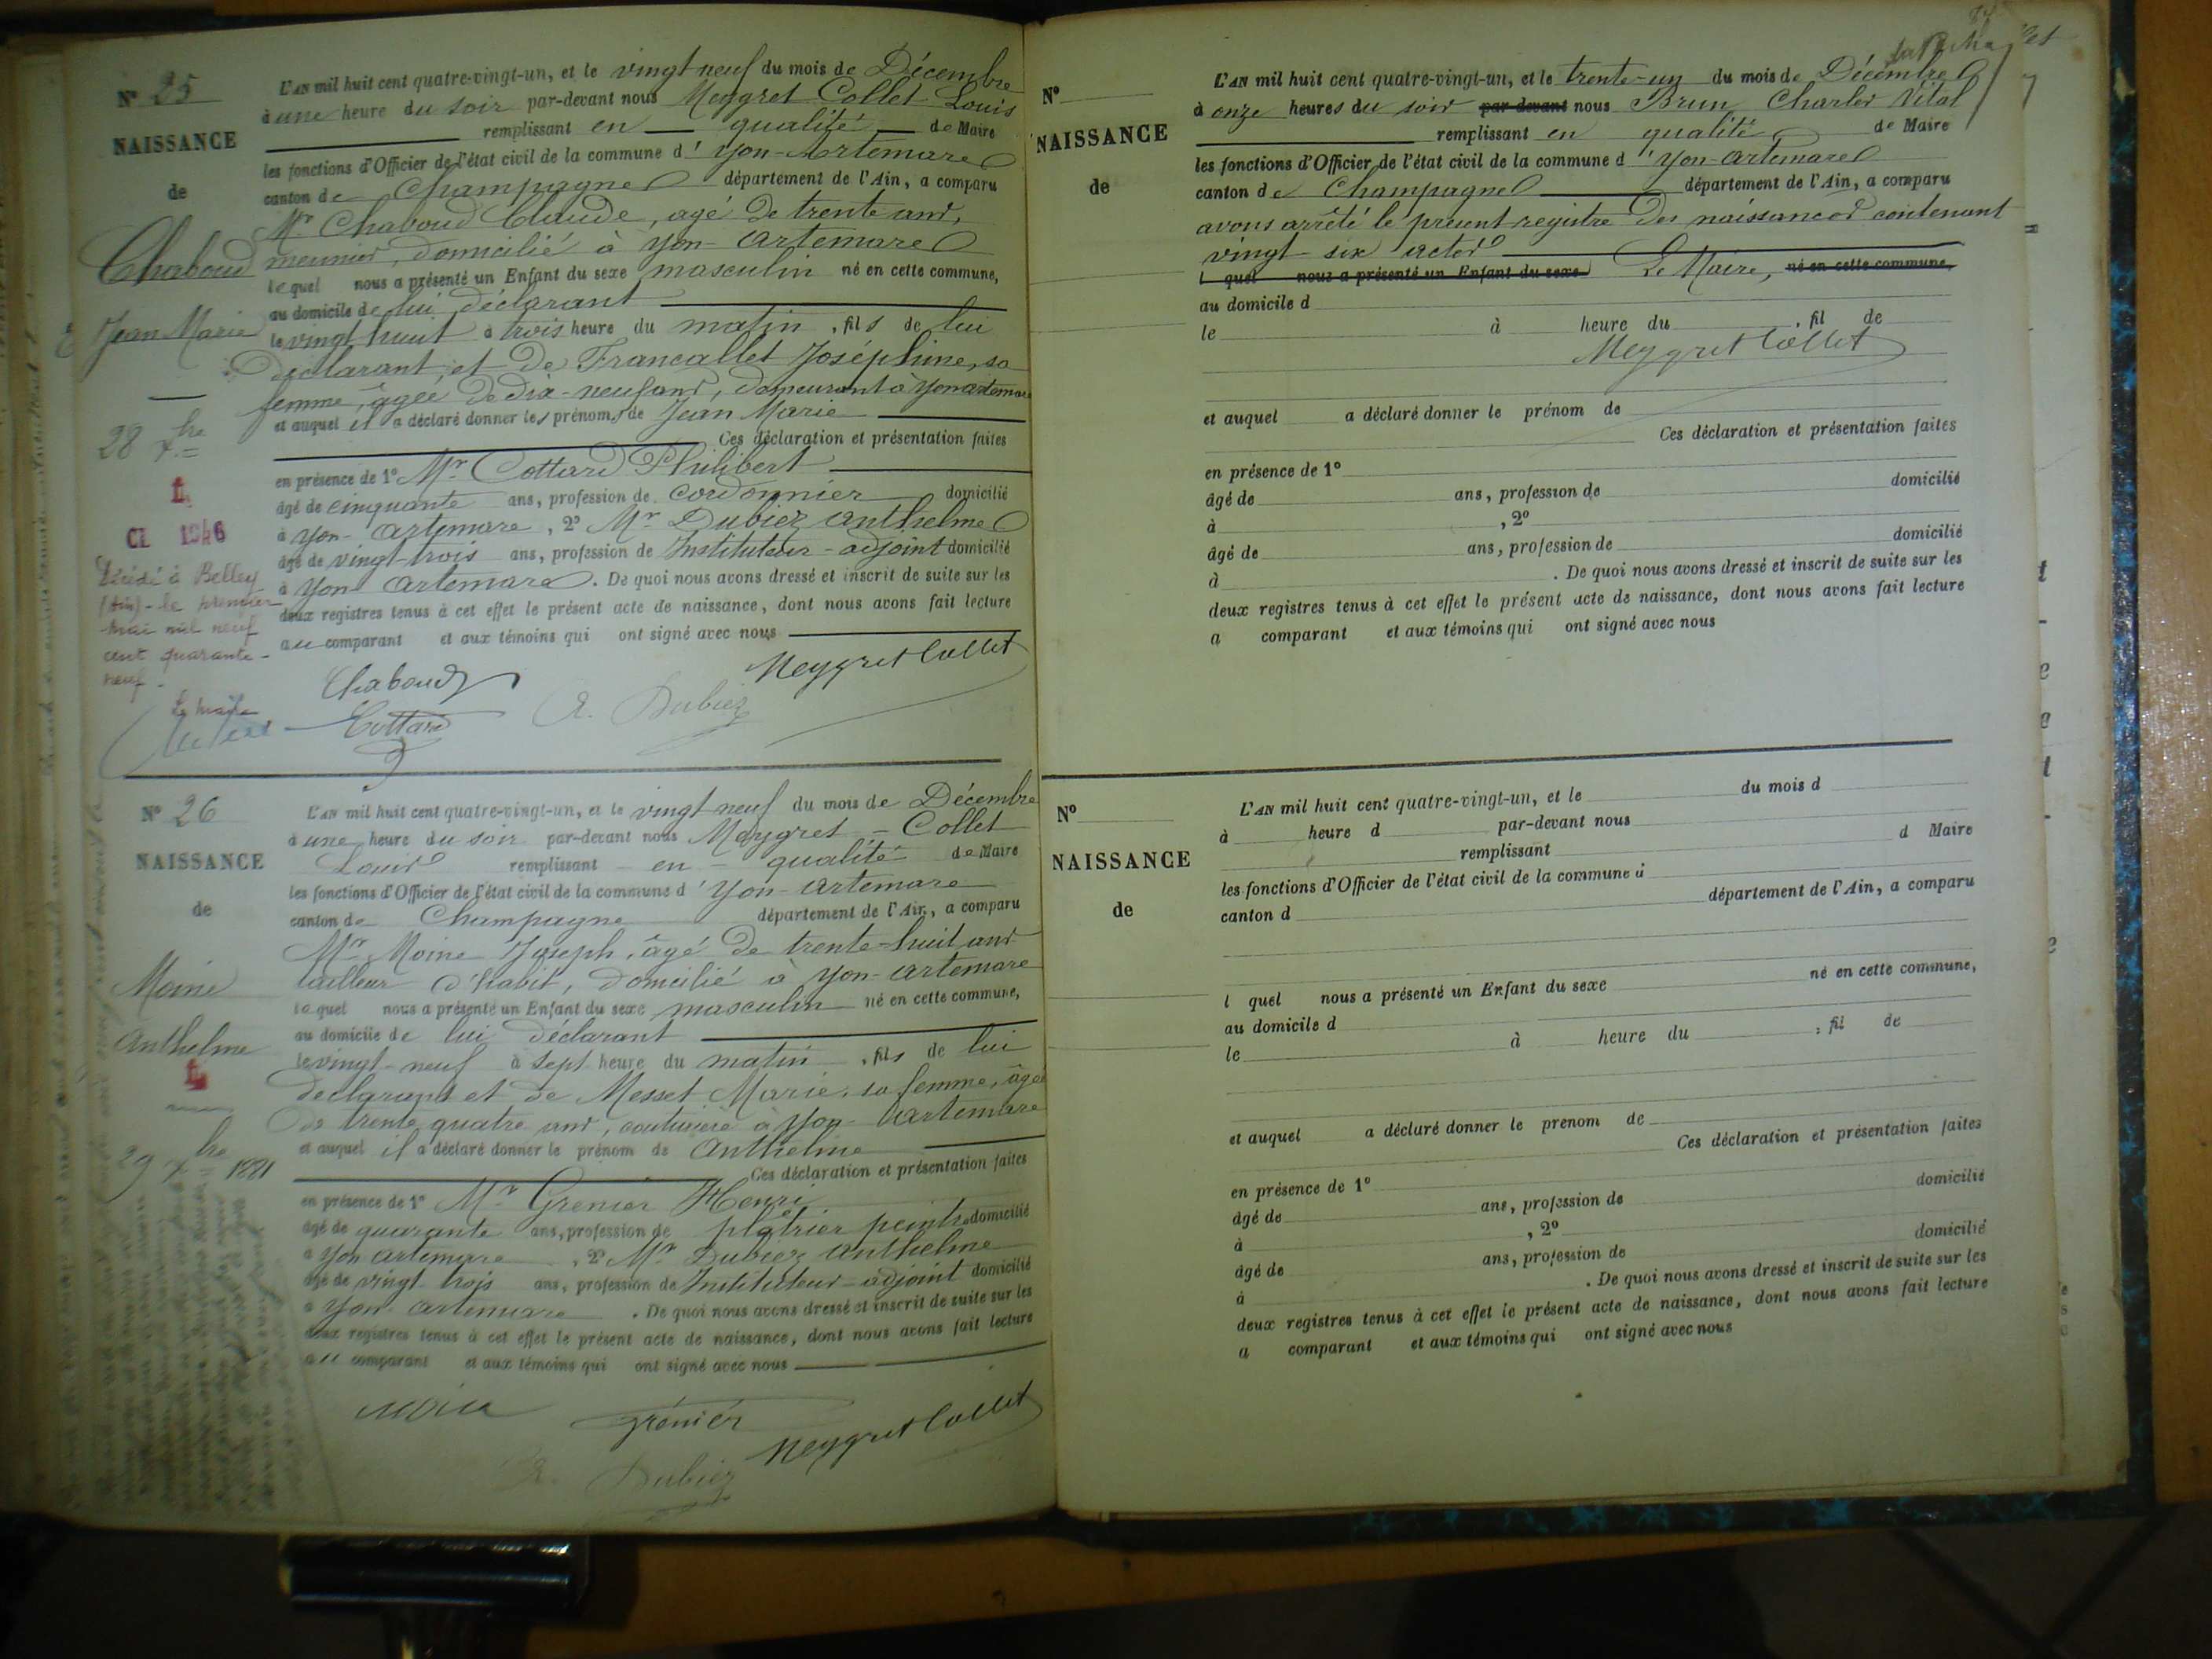 N° 25
NAISSANCE
de
Chaboud
Jean Marie
28 Xbre
CL 1946
Décédé à Belley
(Ain) - le premier
mai mil neuf
cent quarante-
neuf.
Le Maire
L'AN mil huit cent quatre-vingt-un, et le vingt neuf du mois de Décembre
à une heure du soir par-devant nous Meygret Collet Louis
remplissant en qualité de Maire
les fonctions d'Officier de l'état civil de la commune d'Yon-Artemare
canton de Champagne département de l'Ain, a comparu
Mr Chaboud Claude, agé de trente ans,
meunier, domicilié à Yon-Artemare
lequel nous a présenté un Enfant du sexe masculin né en cette commune,
au domicile de lui déclarant
le vingt huit à trois heure du matin, fils de lui
déclarant et de Francallet Joséphine, sa
femme, âgée de dix-neuf ans, demeurant à Yon artemare
et auquel il a déclaré donner les prénoms de Jean Marie
Ces déclaration et présentation faites
en présence de 1° Mr Cottard Philibert
âgé de cinquante ans, profession de cordonnier domicilié
à Yon-Artemare, 2° Mr Dubiez Anthelme
âgé de vingt-trois ans, profession de Instituteur-adjoint domicilié
à Yon Artemare. De quoi nous avons dressé et inscrit de suite sur les
deux registres tenus à cet effet le présent acte de naissance, dont nous avons fait lecture
au comparant et aux témoins qui ont signé avec nous
Chaboud Meygret Collet
Cottard A. Dubiez
N° 26
NAISSANCE
de
Moine
Anthelme
29 Xbre 1881
L'AN mil huit cent quatre-vingt-un, et le vingt neuf du mois de Décembre
à une heure du soir par-devant nous Meygret - Collet
Louis remplissant en qualité de Maire
les fonctions d'Officier de l'état civil de la commune d'Yon-Artemare
canton de Champagne département de l'Ain, a comparu
Mr Moine Joseph, âgé de trente-huit ans
tailleur d'habit, domicilié à Yon-Artemare
lequel nous a présenté un Enfant du sexe masculin né en cette commune,
au domicile de lui déclarant
le vingt-neuf à sept heure du matin, fils de lui
déclarant et de Messet Marie, sa femme, âgée
de trente quatre ans, couturière à Yon-Artemare
et auquel il a déclaré donner le prénom de Anthelme
Ces déclaration et présentation faites
en présence de 1° Mr Grenier Henri
âgé de quarante ans, profession de plâtrier peintre domicilié
à Yon Artemare, 2° Mr Dubiez Anthelme
âgé de vingt trois ans, profession de Instituteur-adjoint domicilié
à Yon-Artemare. De quoi nous avons dressé et inscrit de suite sur les
deux registres tenus à cet effet le présent acte de naissance, dont nous avons fait lecture
au comparant et aux témoins qui ont signé avec nous
Moine Grenier Meygret Collet
A. Dubiez
N°
NAISSANCE
de
L'AN mil huit cent quatre-vingt-un, et le trente-un du mois de Décembre
à onze heures du soir par-devant nous Brun Charles Vital
remplissant en qualité de Maire
les fonctions d'Officier de l'état civil de la commune d'Yon-Artemare
canton de Champagne département de l'Ain, a comparu
avons arrêté le présent registre des naissances contenant
vingt-six actes
l quel nous a présenté un Enfant du sexe Le Maire, né en cette commune,
au domicile d
le à heure du , fil de
Meygret Collet
et auquel a déclaré donner le prénom de
Ces déclaration et présentation faites
en présence de 1°
âgé de ans, profession de domicilié
à , 2°
âgé de ans, profession de domicilié
à . De quoi nous avons dressé et inscrit de suite sur les
deux registres tenus à cet effet le présent acte de naissance, dont nous avons fait lecture
a comparant et aux témoins qui ont signé avec nous
N°
NAISSANCE
de
L'AN mil huit cent quatre-vingt-un, et le du mois d
à heure d par-devant nous
remplissant d Maire
les fonctions d'Officier de l'état civil de la commune d
canton d département de l'Ain, a comparu
l quel nous a présenté un Enfant du sexe né en cette commune,
au domicile d
le à heure du , fil de
et auquel a déclaré donner le prenom de
Ces déclaration et présentation faites
en présence de 1°
âgé de ans, profession de domicilié
à , 2°
âgé de ans, profession de domicilié
à . De quoi nous avons dressé et inscrit de suite sur les
deux registres tenus à cet effet le présent acte de naissance, dont nous avons fait lecture
a comparant et aux témoins qui ont signé avec nous